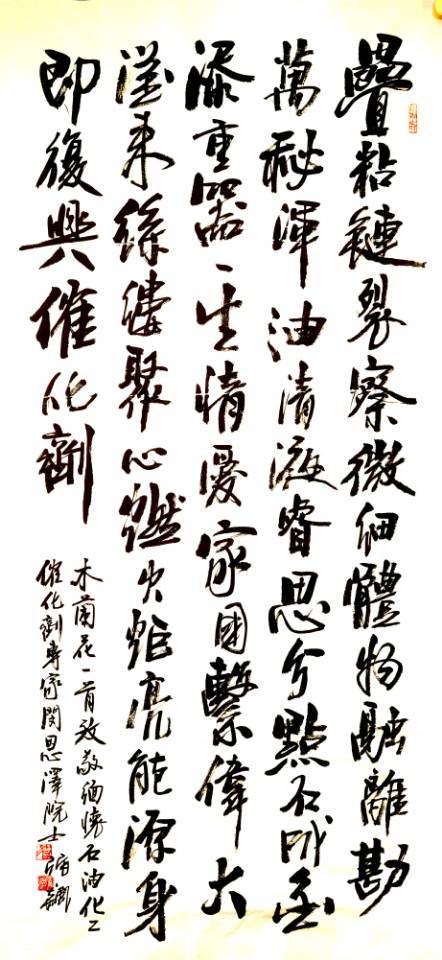 疊粘鏈裂察微細體物融離勘
萬秘渾油清液睿思兮點石成金
添重器一生情愛家國繫偉大
來絲縷聚心燃火炬亮能源身
即復興催化劑
木蘭花一首致敬緬懷石油化工
催化劑專家閔恩澤院士